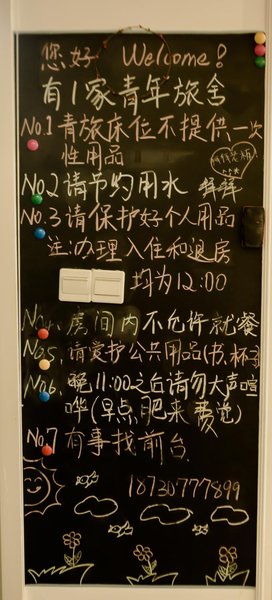 您好 Welcome!
有1家青年旅舍
No.1 青旅床位不提供一次
性用品
No.2 请节约用水 拜拜
No.3 请保护好个人用品
注:办理入住和退房
均为12:00
No.4. 房间内不允许就餐
No.5. 请爱护公共用品(书.杯子
No.6. 晚11:00之后请勿大声喧
哗(早点肥来
No.7 有事找前台
18730777899